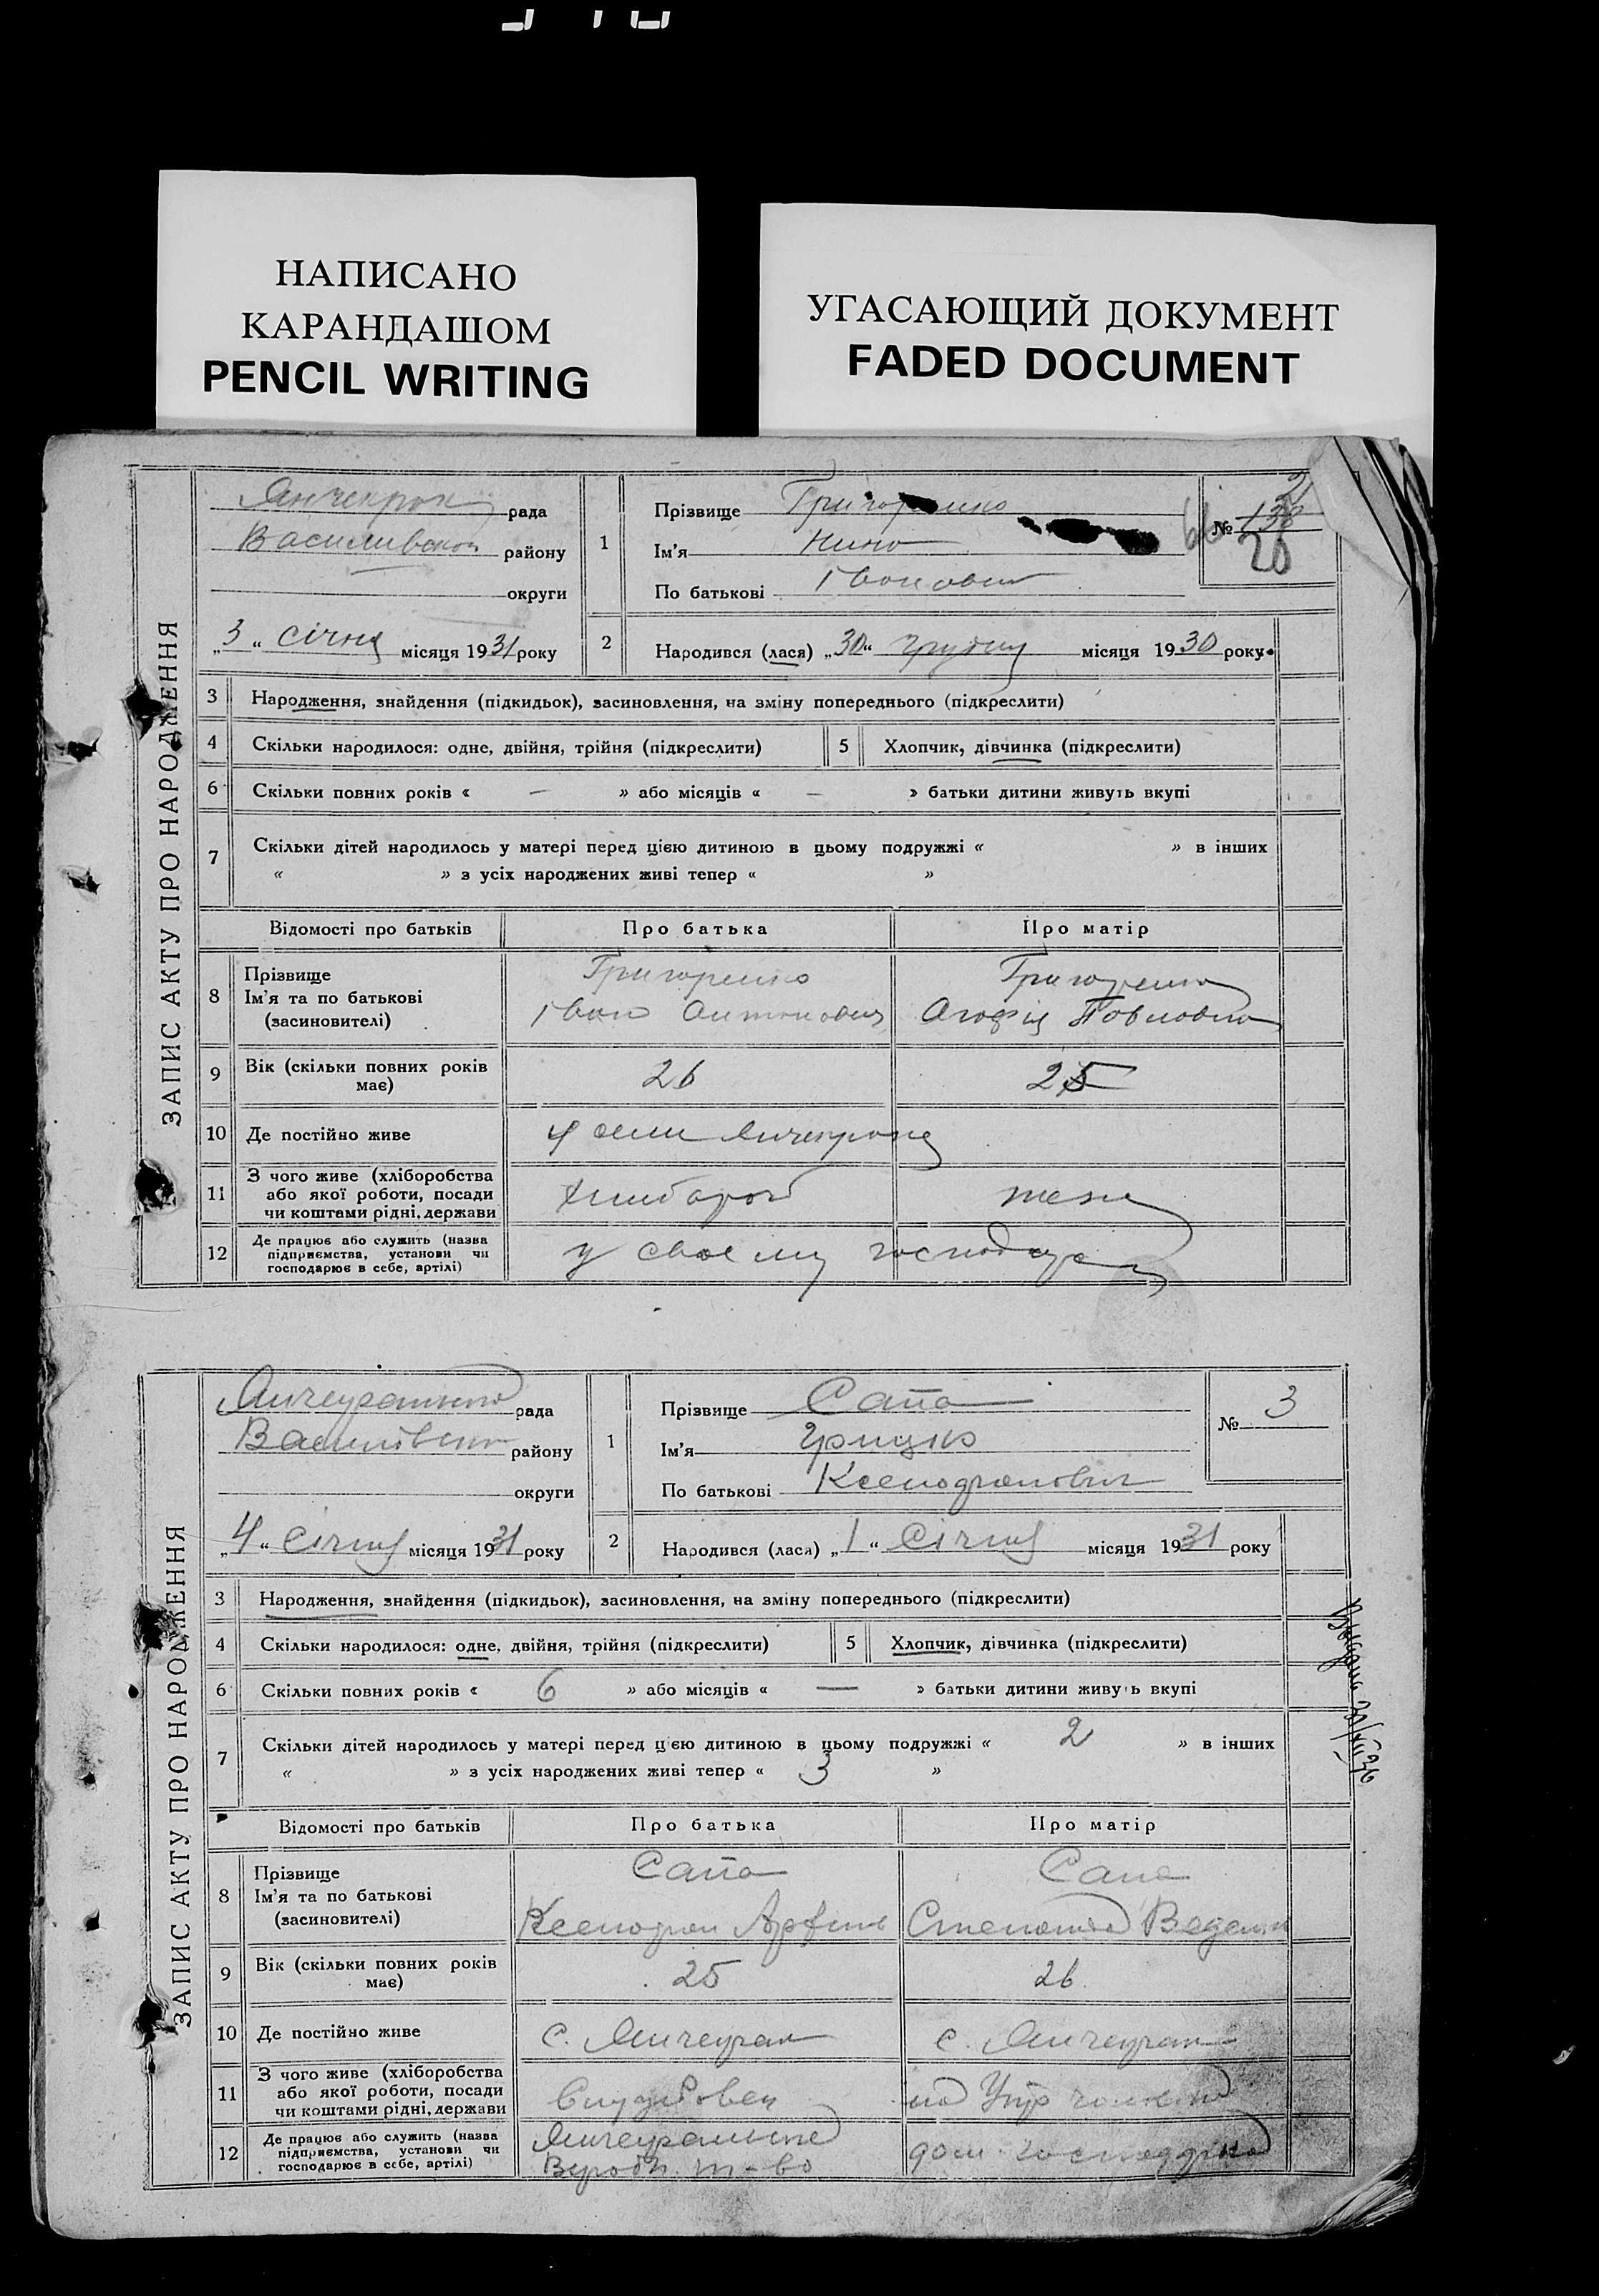 НАПИСАНО
КАРАНДАШОМ
PENCIL WRITING
УГАСАЮЩИЙ ДОКУМЕНТ
FADED DOCUMENT
ЗАПИС АКТУ ПРО НАРОДЖЕННЯ
Янчекрак рада
Василивської району
округи
„3“ січня місяця 1931 року
1
Прізвище Григоренко
Ім'я Нина
По батькові Івановна
№ 138
2
20
2
Народився (лася) „30“ грудня місяця 1930 року
3 Народження, знайдення (підкидьок), засиновлення, на зміну попереднього (підкреслити)
4 Скільки народилося: одне, двійня, трійня (підкреслити) 5 Хлопчик, дівчинка (підкреслити)
6 Скільки повних років « — » або місяців « — » батьки дитини живуть вкупі
7 Скільки дітей народилось у матері перед цією дитиною в цьому подружжі « » в інших
« » з усіх народжених живі тепер « »
Відомості про батьків Про батька Про матір
8 Прізвище
Ім'я та по батькові
(засновителі)
Григоренко
Іван Антонович
Григоренко
Агафія Павловна
9 Вік (скільки повних років
має)
26 25
10 Де постійно живе У селі Янчекраке
11 З чого живе (хліборобства
або якої роботи, посади
чи коштами рідні, держави
Хлибороб
12 Де працює або служить (назва
підприємства, установи чи
господарює в себе, артілі)
у своєму господарс
ЗАПИС АКТУ ПРО НАРОДЖЕННЯ
Янчекрацька рада
Василівськ району
округи
„4“ Січня місяця 1931 року
1
Прізвище Сапа
Ім'я Грицко
По батькові Ксенофонович
№ 3
2
Народився (лася) „1“ Січня місяця 1931 року
3 Народження, знайдення (підкидьок), засиновлення, на зміну попереднього (підкреслити)
4 Скільки народилося: одне, двійня, трійня (підкреслити) 5 Хлопчик, дівчинка (підкреслити)
6 Скільки повних років « 6 » або місяців « — » батьки дитини живуть вкупі
7 Скільки дітей народилось у матері перед цією дитиною в цьому подружжі « 2 » в інших
« » з усіх народжених живі тепер « 3 »
Відомості про батьків Про батька Про матір
8 Прізвище
Ім'я та по батькові
(засиновителі)
Сапа
Ксенофон
Сапа
Степанида
9 Вік (скільки повних років
має)
25 26
10 Де постійно живе с. Янчекрак с. Янчекрак
11 З чого живе (хліборобства
або якої роботи, посади
чи коштами рідні, держави
Службовец
на Утр
12 Де працює або служить (назва
підприємства, установи чи
господарює в себе, артілі)
Янчекрацьке
Виробн. т-во
дом господарка